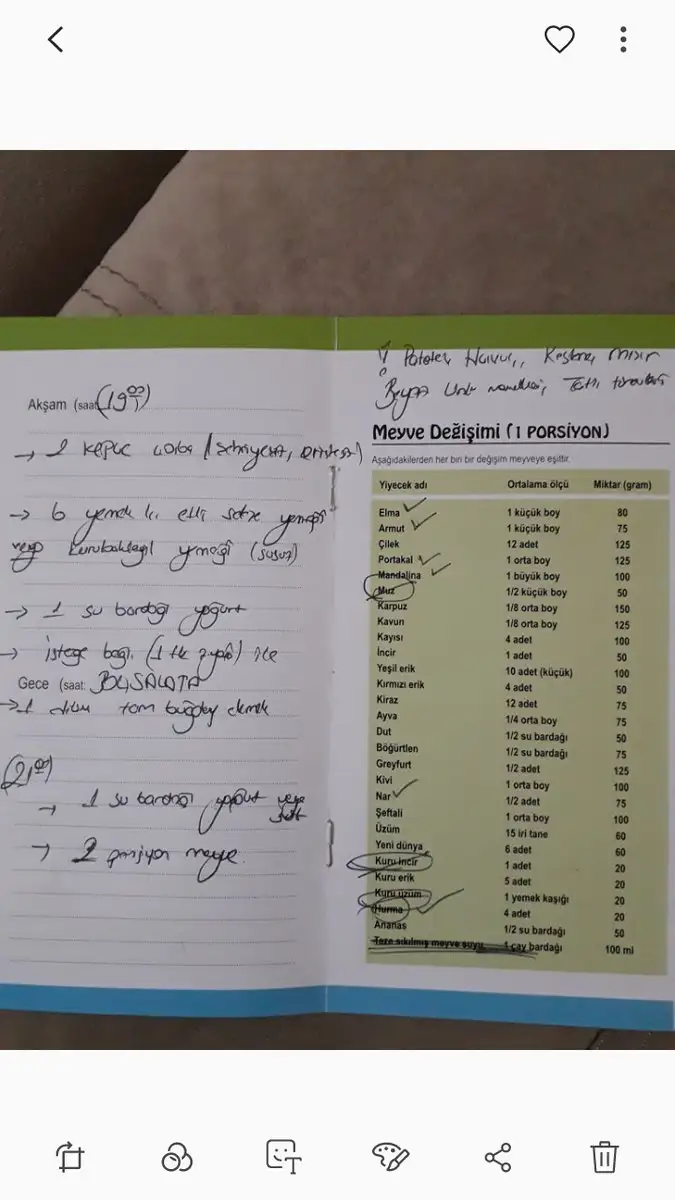 Akşam (saat (19:00)
→ 1 kepçe çorba / (şehriyesiz,
→ 6 yemek k. etli sebze yemeği
veya kurubaklagil yemeği (susuz)
→ 1 su bardağı yoğurt
→ isteğe bağlı (1 tk z.yağı) ile
Gece (saat: BOL SALATA
→ 1 dilim tam buğday ekmek
(21:00)
→ 1 su bardağı yoğurt veya
süt
→ 2 porsiyon meyve.
! Patates, Havuç, Kestane, Mısır
Beyaz Unlu mamelleri, Tatlı
Meyve Değişimi (1 PORSİYON)
Aşağıdakilerden her biri bir değişim meyveye eşittir.
Yiyecek adı Ortalama ölçü Miktar (gram)
Elma 1 küçük boy 80
Armut 1 küçük boy 75
Çilek 12 adet 125
Portakal 1 orta boy 125
Mandalina 1 büyük boy 100
Muz 1/2 küçük boy 50
Karpuz 1/8 orta boy 150
Kavun 1/8 orta boy 125
Kayısı 4 adet 100
İncir 1 adet 50
Yeşil erik 10 adet (küçük) 100
Kırmızı erik 4 adet 50
Kiraz 12 adet 75
Ayva 1/4 orta boy 75
Dut 1/2 su bardağı 50
Böğürtlen 1/2 su bardağı 75
Greyfurt 1/2 adet 125
Kivi 1 orta boy 100
Nar 1/2 adet 75
Şeftali 1 orta boy 100
Üzüm 15 iri tane 60
Yeni dünya 6 adet 60
Kuru incir 1 adet 20
Kuru erik 5 adet 20
Kuru üzüm 1 yemek kaşığı 20
Hurma 4 adet 20
Ananas 1/2 su bardağı 50
Taze sıkılmış meyve suyu 1 çay bardağı 100 ml